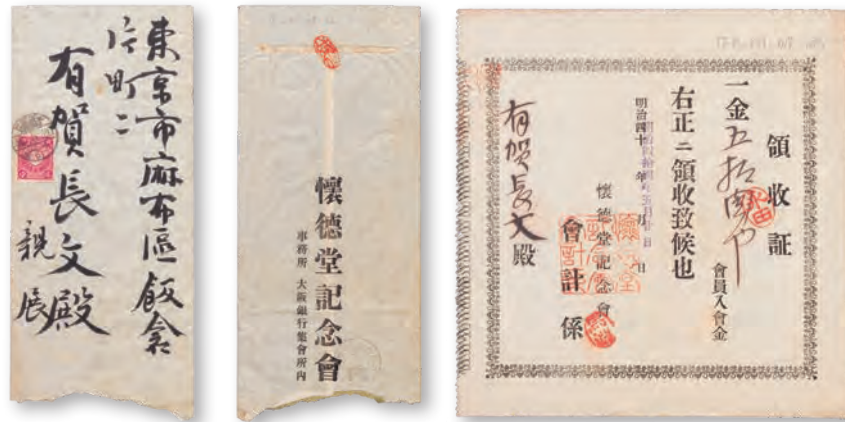 東京市麻布區飯倉
片町二
有賀長文殿
親展
懷德堂記念會
事務所 大阪銀行集會所內
領收証
一金五拾円也
會員入會金
右正ニ領收致候也
明治四十 年 月 日
懷德堂記念會
會計係
有賀長文殿